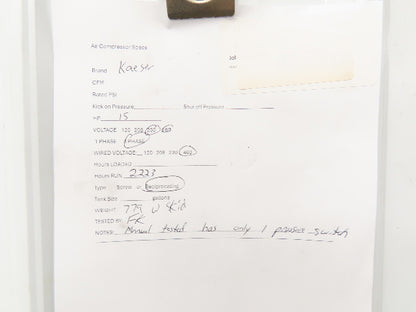 Air Compressor Specs
Brand Kaeser
CFM
Rated PSI
Kick on Pressure Shut off Pressure
HP 15
VOLTAGE 120 208 230 460
1 PHASE 3 PHASE
WIRED VOLTAGE 120 208 230 460
Hours LOADED
Hours RUN 2223
Type Screw or Reciprocating
Tank Size gallons
WEIGHT: 779 w skid
TESTED BY: FK
NOTES: Manual tested has only 1 switch